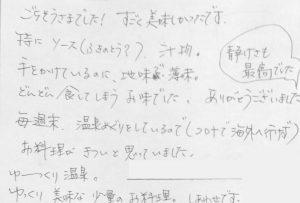 ごちそうさまでした！ すごく美味しかったです。
特に ソース（ふきのとう？） 汁物。
静けさも
最高でした
手をかけているのに、地味薄味。
どんどん食してしまう お味でした。ありがとうございました
毎週末、温泉めぐりをしているので（コロナで海外へ行けず）
お料理が きついと思っていました。
ゆーっくり温泉。
ゆっくり 美味な 少量の お料理。しあわせです。